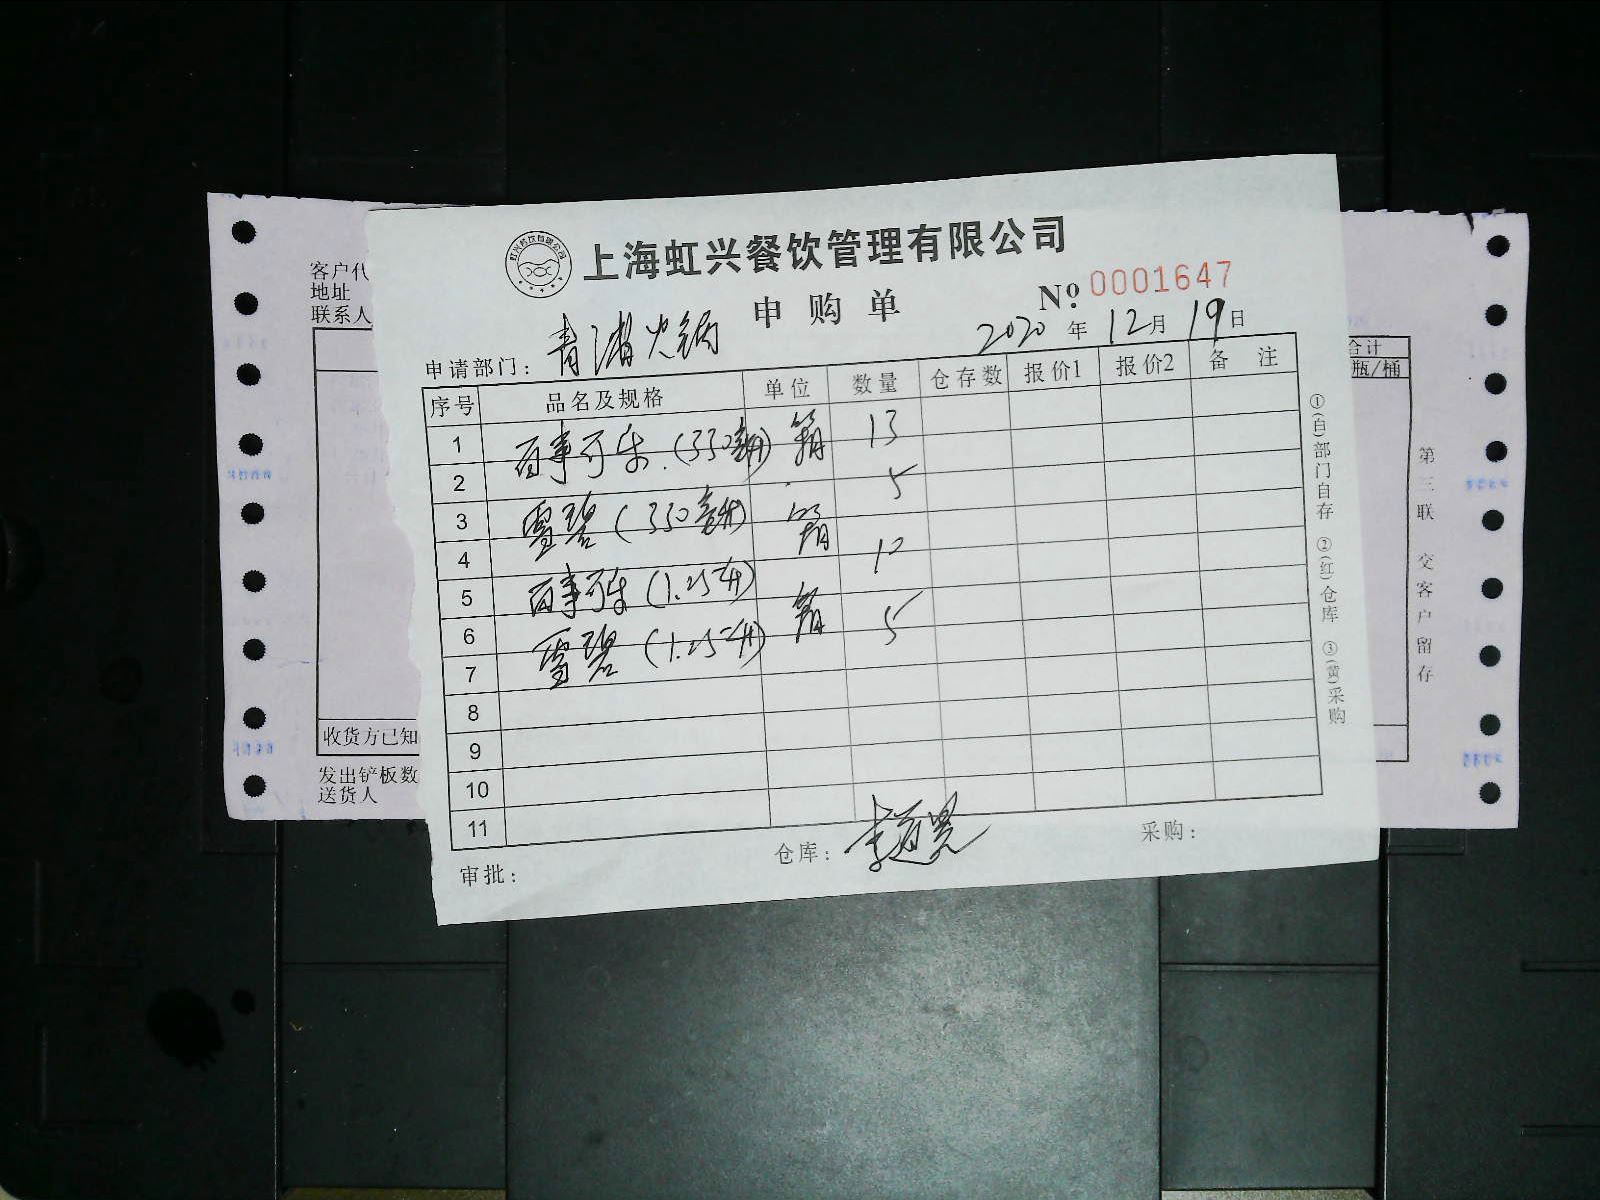 上海虹兴餐饮管理有限公司
申购单 № 0001647
申请部门： 青浦火锅 2020年12月19日
序号 品名及规格 单位 数量 仓存数 报价1 报价2 备注
1 百事可乐.(330毫升) 箱 13
2
3 雪碧(330毫升) 箱 5
4
5 百事可乐(1.25升) 12
6 箱
7 雪碧(1.25升) 5
8
9
10
11
审批： 仓库： 采购：
①(白)部门自存 ②(红)仓库 ③(黄)采购
客户代
地址
联系人
收货方已知
发出铲板数
送货人
合计
瓶/桶
第三联 交客户留存